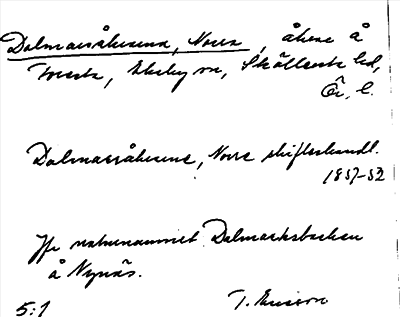 Dalmasåkrarna, Norra, åkrar å
Tvesta, Ekeby sn, Sköllersta hd,
Ör. l.
Dalmasåkrarne, Norra skifteshandl.
1851-52
Jfr naturnamnet Dalmarksbacken
å Nynäs.
5:1 T. Ericson